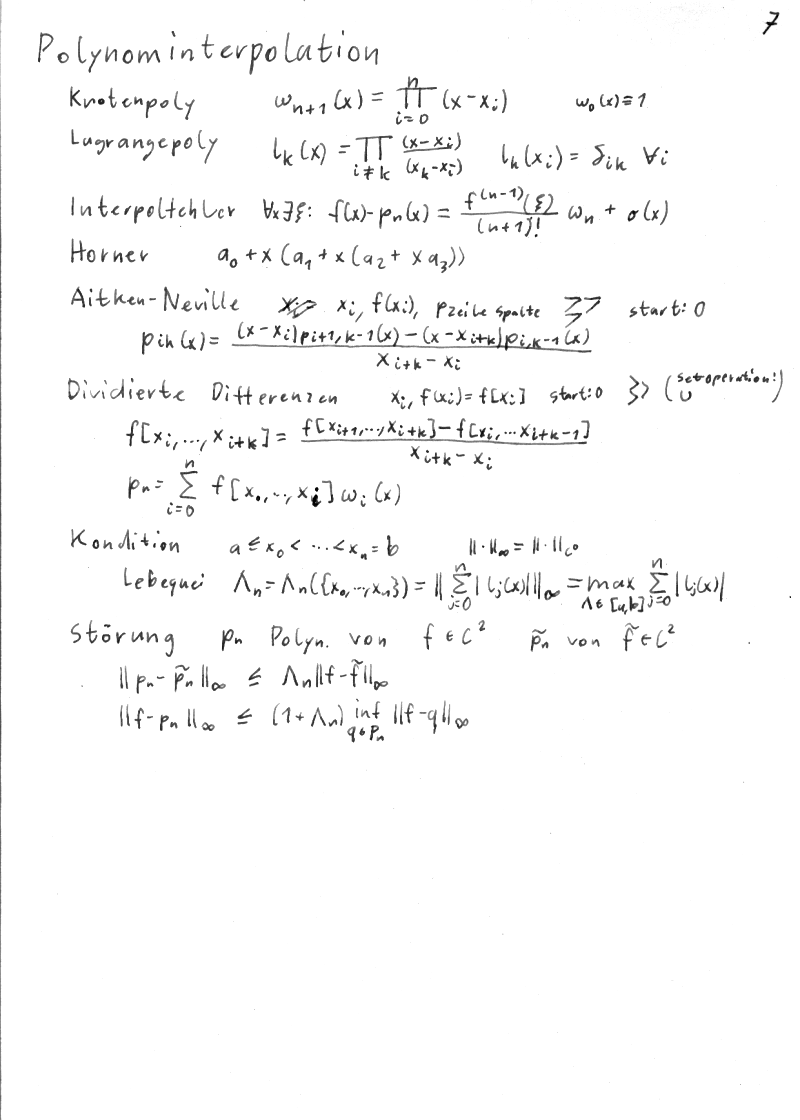 7
Polynominterpolation
Knotenpoly ω_{n+1}(x) = ∏_{i=0}^{n} (x-x_i) ω_0(x)≡1
Lagrangepoly l_k(x) = ∏_{i≠k} (x-x_i)/(x_k-x_i) l_k(x_i) = δ_{ik} ∀i
Interpolfehler ∀x∃ξ: f(x)-p_n(x) = f^{(n-1)}(ξ)/(n+1)! ω_n + σ(x)
Horner a_0+x(a_1+x(a_2+xa_3))
Aitken-Neville x_i, f(x_i), p zeile spalte start: 0
p_{ik}(x) = ((x-x_i)p_{i+1,k-1}(x)-(x-x_{i+k})p_{i,k-1}(x))/(x_{i+k}-x_i)
Dividierte Differenzen x_i, f(x_i)=f[x_i] start:0 (setoperation! ∪)
f[x_i,...,x_{i+k}] = (f[x_{i+1},...,x_{i+k}]-f[x_i,...x_{i+k-1}])/(x_{i+k}-x_i)
p_n = ∑_{i=0}^{n} f[x_0,...,x_i] ω_i(x)
Kondition a≤x_0<...<x_n=b ||·||_∞=||·||_{C^0}
Λ_n=Λ_n({x_0,...,x_n}) = ||∑_{j=0}^{n}|l_j(x)|||_∞ = max_{Λ∈[a,b]} ∑_{j=0}^{n}|l_j(x)|
Störung p_n Polyn. von f∈C^2 p̃_n von f̃∈C^2
||p_n-p̃_n||_∞ ≤ Λ_n||f-f̃||_∞
||f-p_n||_∞ ≤ (1+Λ_n) inf_{q∈P_n} ||f-q||_∞